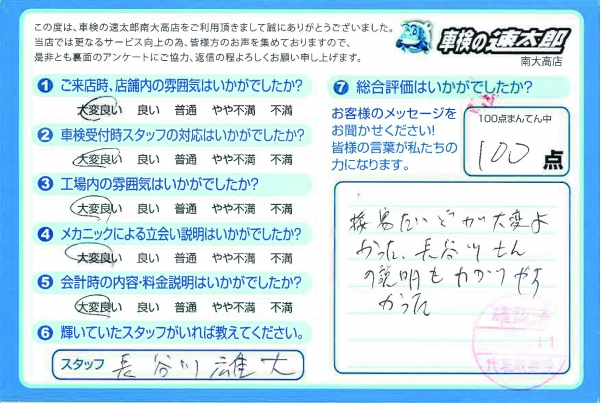 この度は、車検の速太郎南大高店をご利用頂きまして誠にありがとうございました。
当店では更なるサービス向上の為、皆様方のお声を集めておりますので、
是非とも裏面のアンケートにご協力、返信の程よろしくお願い申し上げます。
車検の速太郎
南大高店
1 ご来店時、店舗内の雰囲気はいかがでしたか?
大変良い 良い 普通 やや不満 不満
2 車検受付時スタッフの対応はいかがでしたか?
大変良い 良い 普通 やや不満 不満
3 工場内の雰囲気はいかがでしたか?
大変良い 良い 普通 やや不満 不満
4 メカニックによる立会い説明はいかがでしたか?
大変良い 良い 普通 やや不満 不満
5 会計時の内容・料金説明はいかがでしたか?
大変良い 良い 普通 やや不満 不満
6 輝いていたスタッフがいれば教えてください。
スタッフ 長谷川 雄大
7 総合評価はいかがでしたか?
お客様のメッセージを
お聞かせください!
皆様の言葉が私たちの
力になります。
100点まんてん中
100 点
接客たいどが大変よ
かった、長谷川さん
の説明もわかりやす
かった
確認済